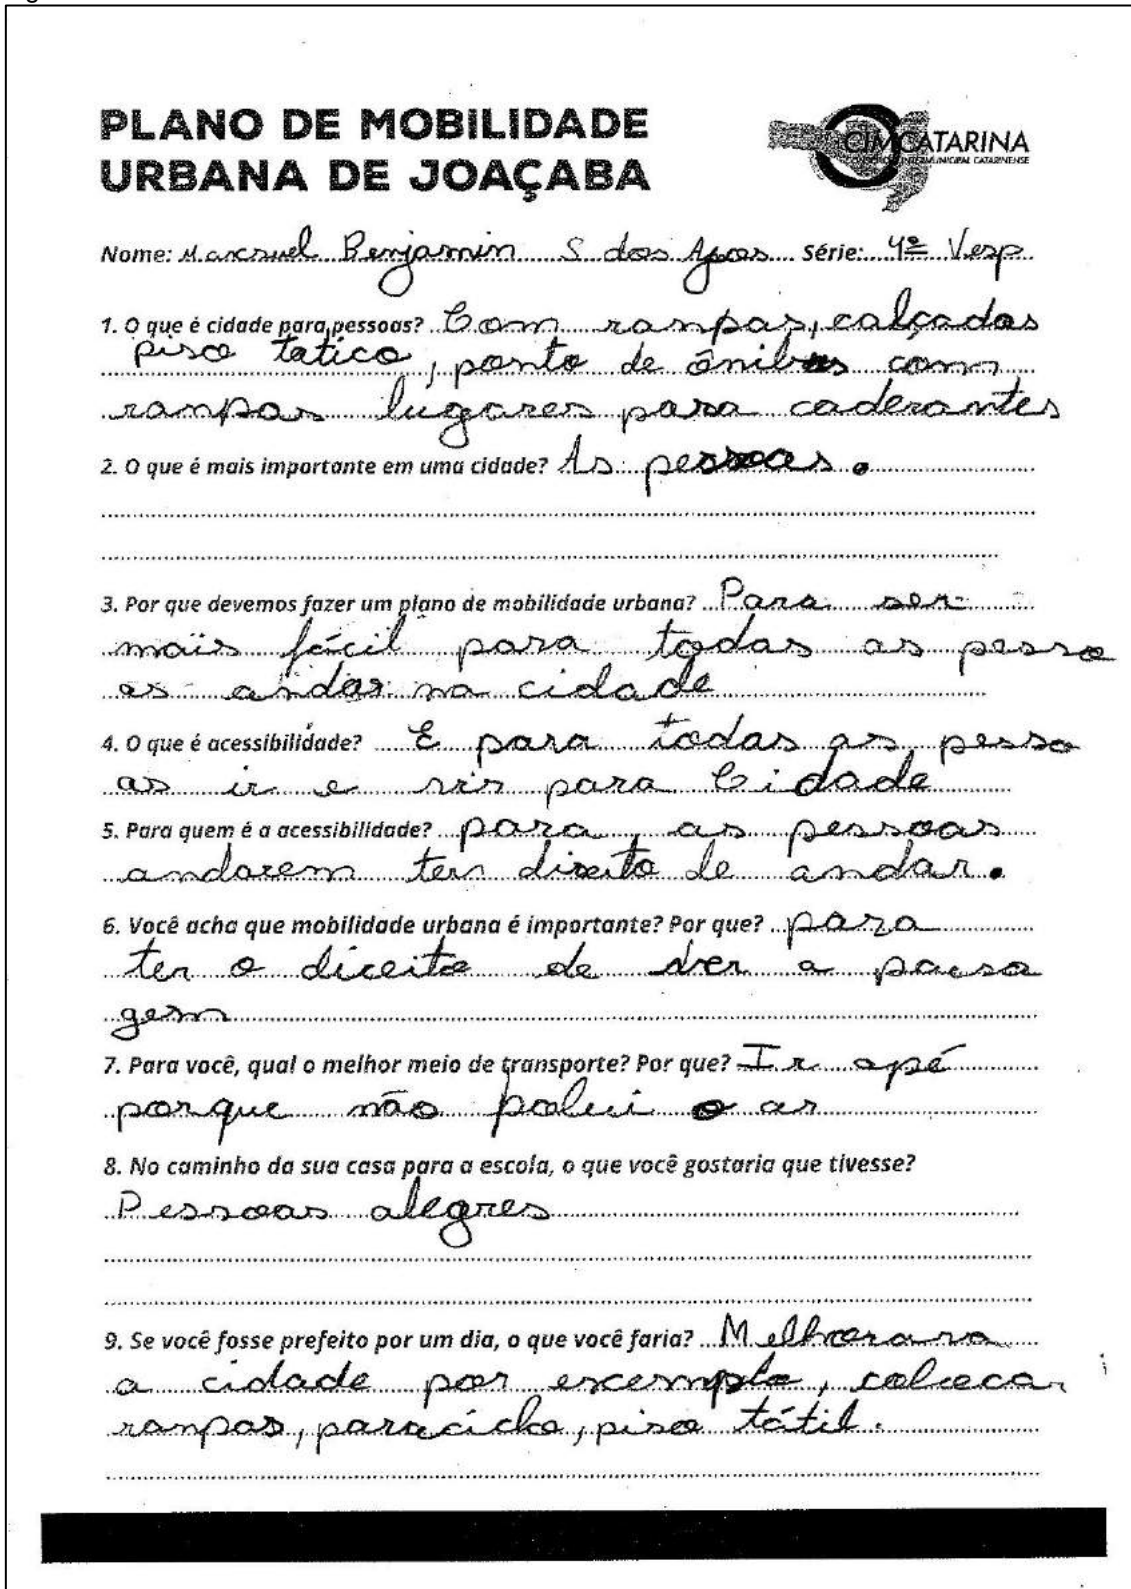 PLANO DE MOBILIDADE
URBANA DE JOAÇABA
CIMCATARINA
CONSÓRCIO INTERMUNICIPAL CATARINENSE
Nome: Benjamin S dos Série: 4º Vesp
1. O que é cidade para pessoas? Com rampas, calçadas
piso tatico, ponto de ônibus com
rampas lugares para caderantes
2. O que é mais importante em uma cidade? As pessoas.
3. Por que devemos fazer um plano de mobilidade urbana? Para ser
mais fácil para todas as pesso
as andar na cidade
4. O que é acessibilidade? E para todas as pesso
as ir e vir para Cidade
5. Para quem é a acessibilidade? para as pessoas
andarem ter direito de andar.
6. Você acha que mobilidade urbana é importante? Por que? para
ter o direito de ver a paisa
gem
7. Para você, qual o melhor meio de transporte? Por que? Ir apé
porque não polui o ar
8. No caminho da sua casa para a escola, o que você gostaria que tivesse?
Pessoas alegres
9. Se você fosse prefeito por um dia, o que você faria?
a cidade por excemplo, coloca
rampas, paraciclo, piso tátil.